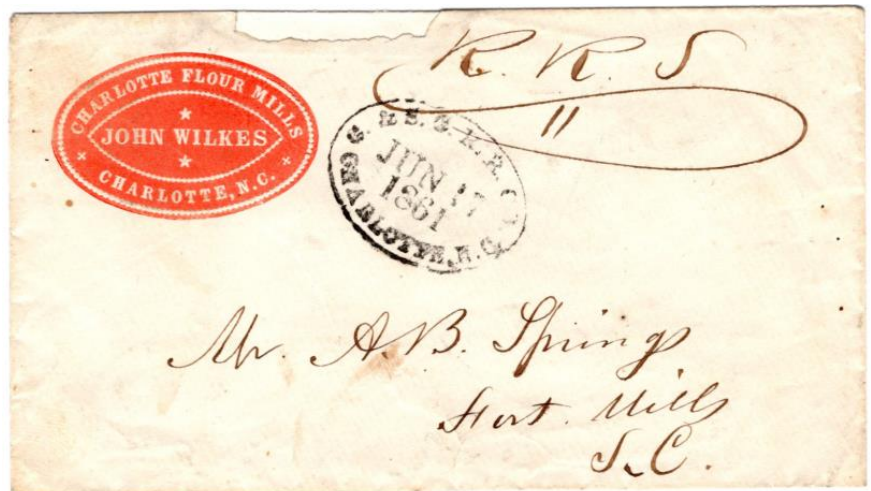 CHARLOTTE FLOUR MILLS
JOHN WILKES
CHARLOTTE, N.C.
R. R. S
11
C. & S. C. R. R.
JUN 17
1861
CHARLOTTE, N.C.
Mr. A.B. Springs
Fort. Mills
S.C.